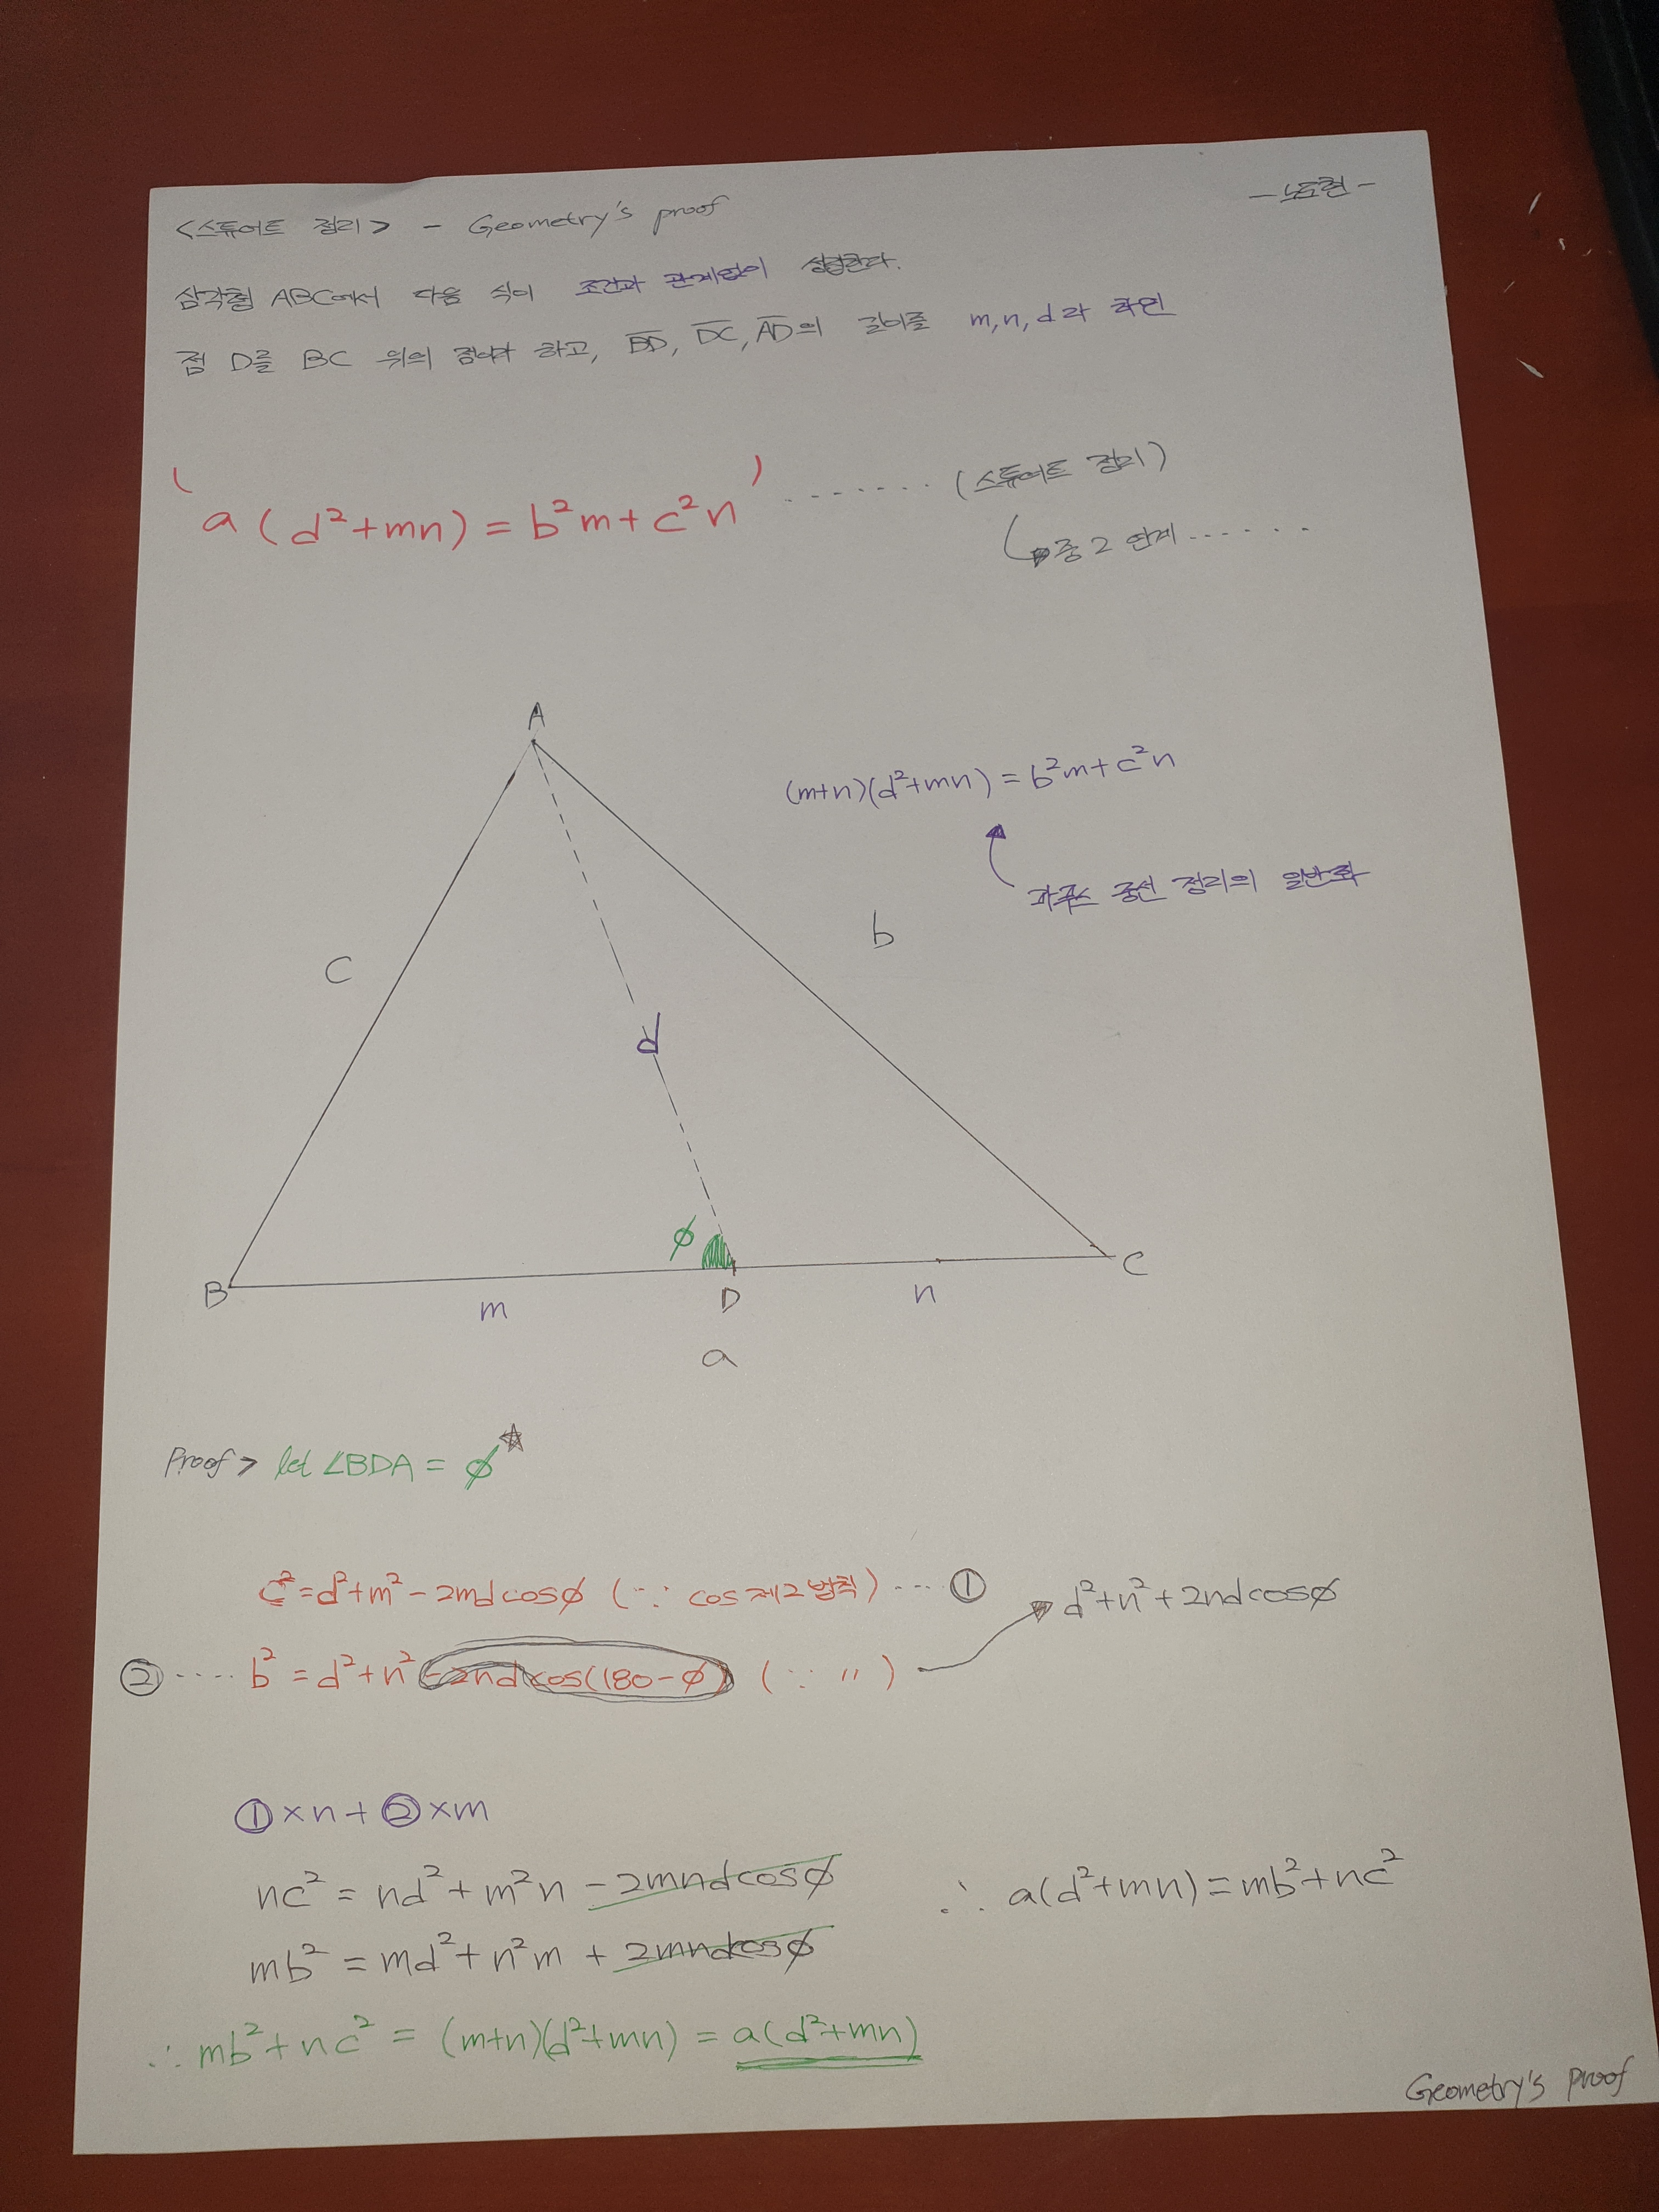 <스튜어트 정리> - Geometry's proof
-노도현-
삼각형 ABC에서 다음 식이 조건과 관계없이 성립한다.
점 D를 BC 위의 점이라 하고, B̅D̅, D̅C̅, A̅D̅의 길이를 m, n, d라 하면
( a(d²+mn) = b²m+c²n ) ······· (스튜어트 정리)
중2 단계······
A
(m+n)(d²+mn) = b²m+c²n
파푸스 중선 정리의 일반화
b
c
d
ϕ
B
m
D
n
C
a
Proof> let ∠BDA = ϕ☆
c²=d²+m²-2mdcosϕ (∵ cos제2법칙) ···· ①
d²+n²+2ndcosϕ
② ···· b² = d²+n²-2ndcos(180-ϕ) (∵ 〃)
①×n+②×m
nc² = nd²+m²n-2mndcosϕ
∴ a(d²+mn)=mb²+nc²
mb² = md²+n²m + 2mndcosϕ
∴ mb²+nc² = (m+n)(d²+mn) = a(d²+mn)
Geometry's proof